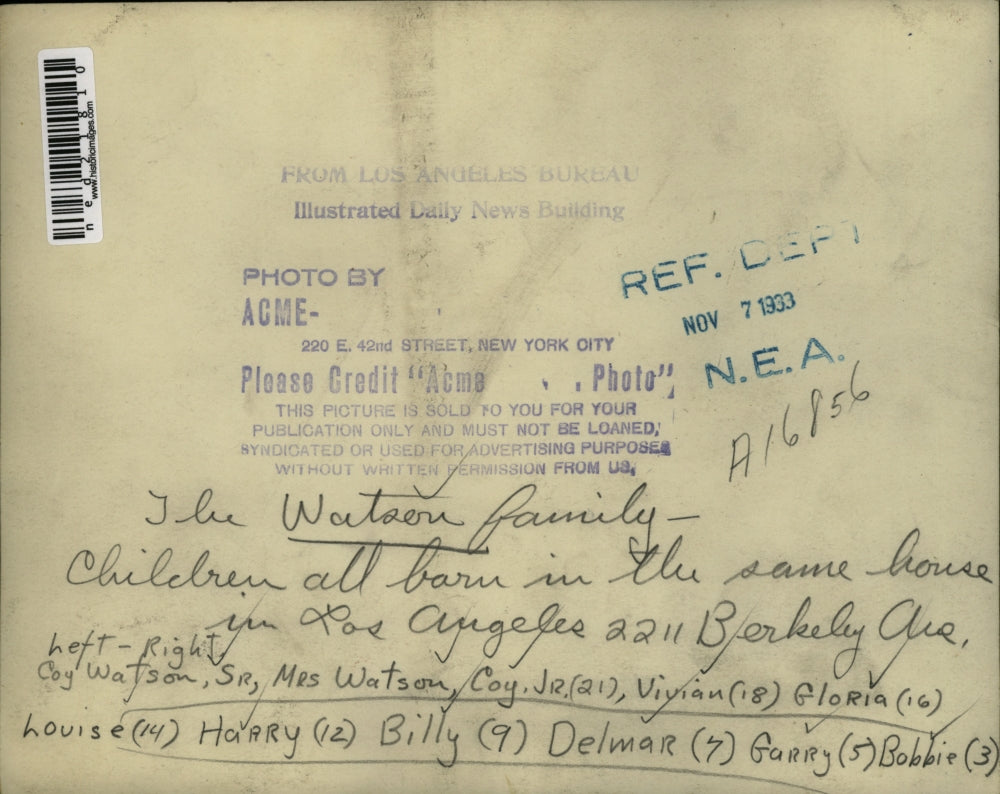 ned21810
www.historicimages.com
FROM LOS ANGELES BUREAU
Illustrated Daily News Building
PHOTO BY
ACME-
220 E. 42nd STREET, NEW YORK CITY
Please Credit "Acme Photo"
THIS PICTURE IS SOLD TO YOU FOR YOUR
PUBLICATION ONLY AND MUST NOT BE LOANED,
SYNDICATED OR USED FOR ADVERTISING PURPOSES
WITHOUT WRITTEN PERMISSION FROM US.
REF. DEPT
NOV 7 1933
N.E.A.
A16856
The Watson family-
Children all born in the same house
in Los Angeles 2211 Berkeley Ave.
Left-Right,
Coy Watson, SR, MRS Watson, Coy. JR.(21), Vivian(18) GLORIA(16)
Louise(14) HARRY(12) Billy (9) Delmar (7) GARRY(5) Bobbie (3)